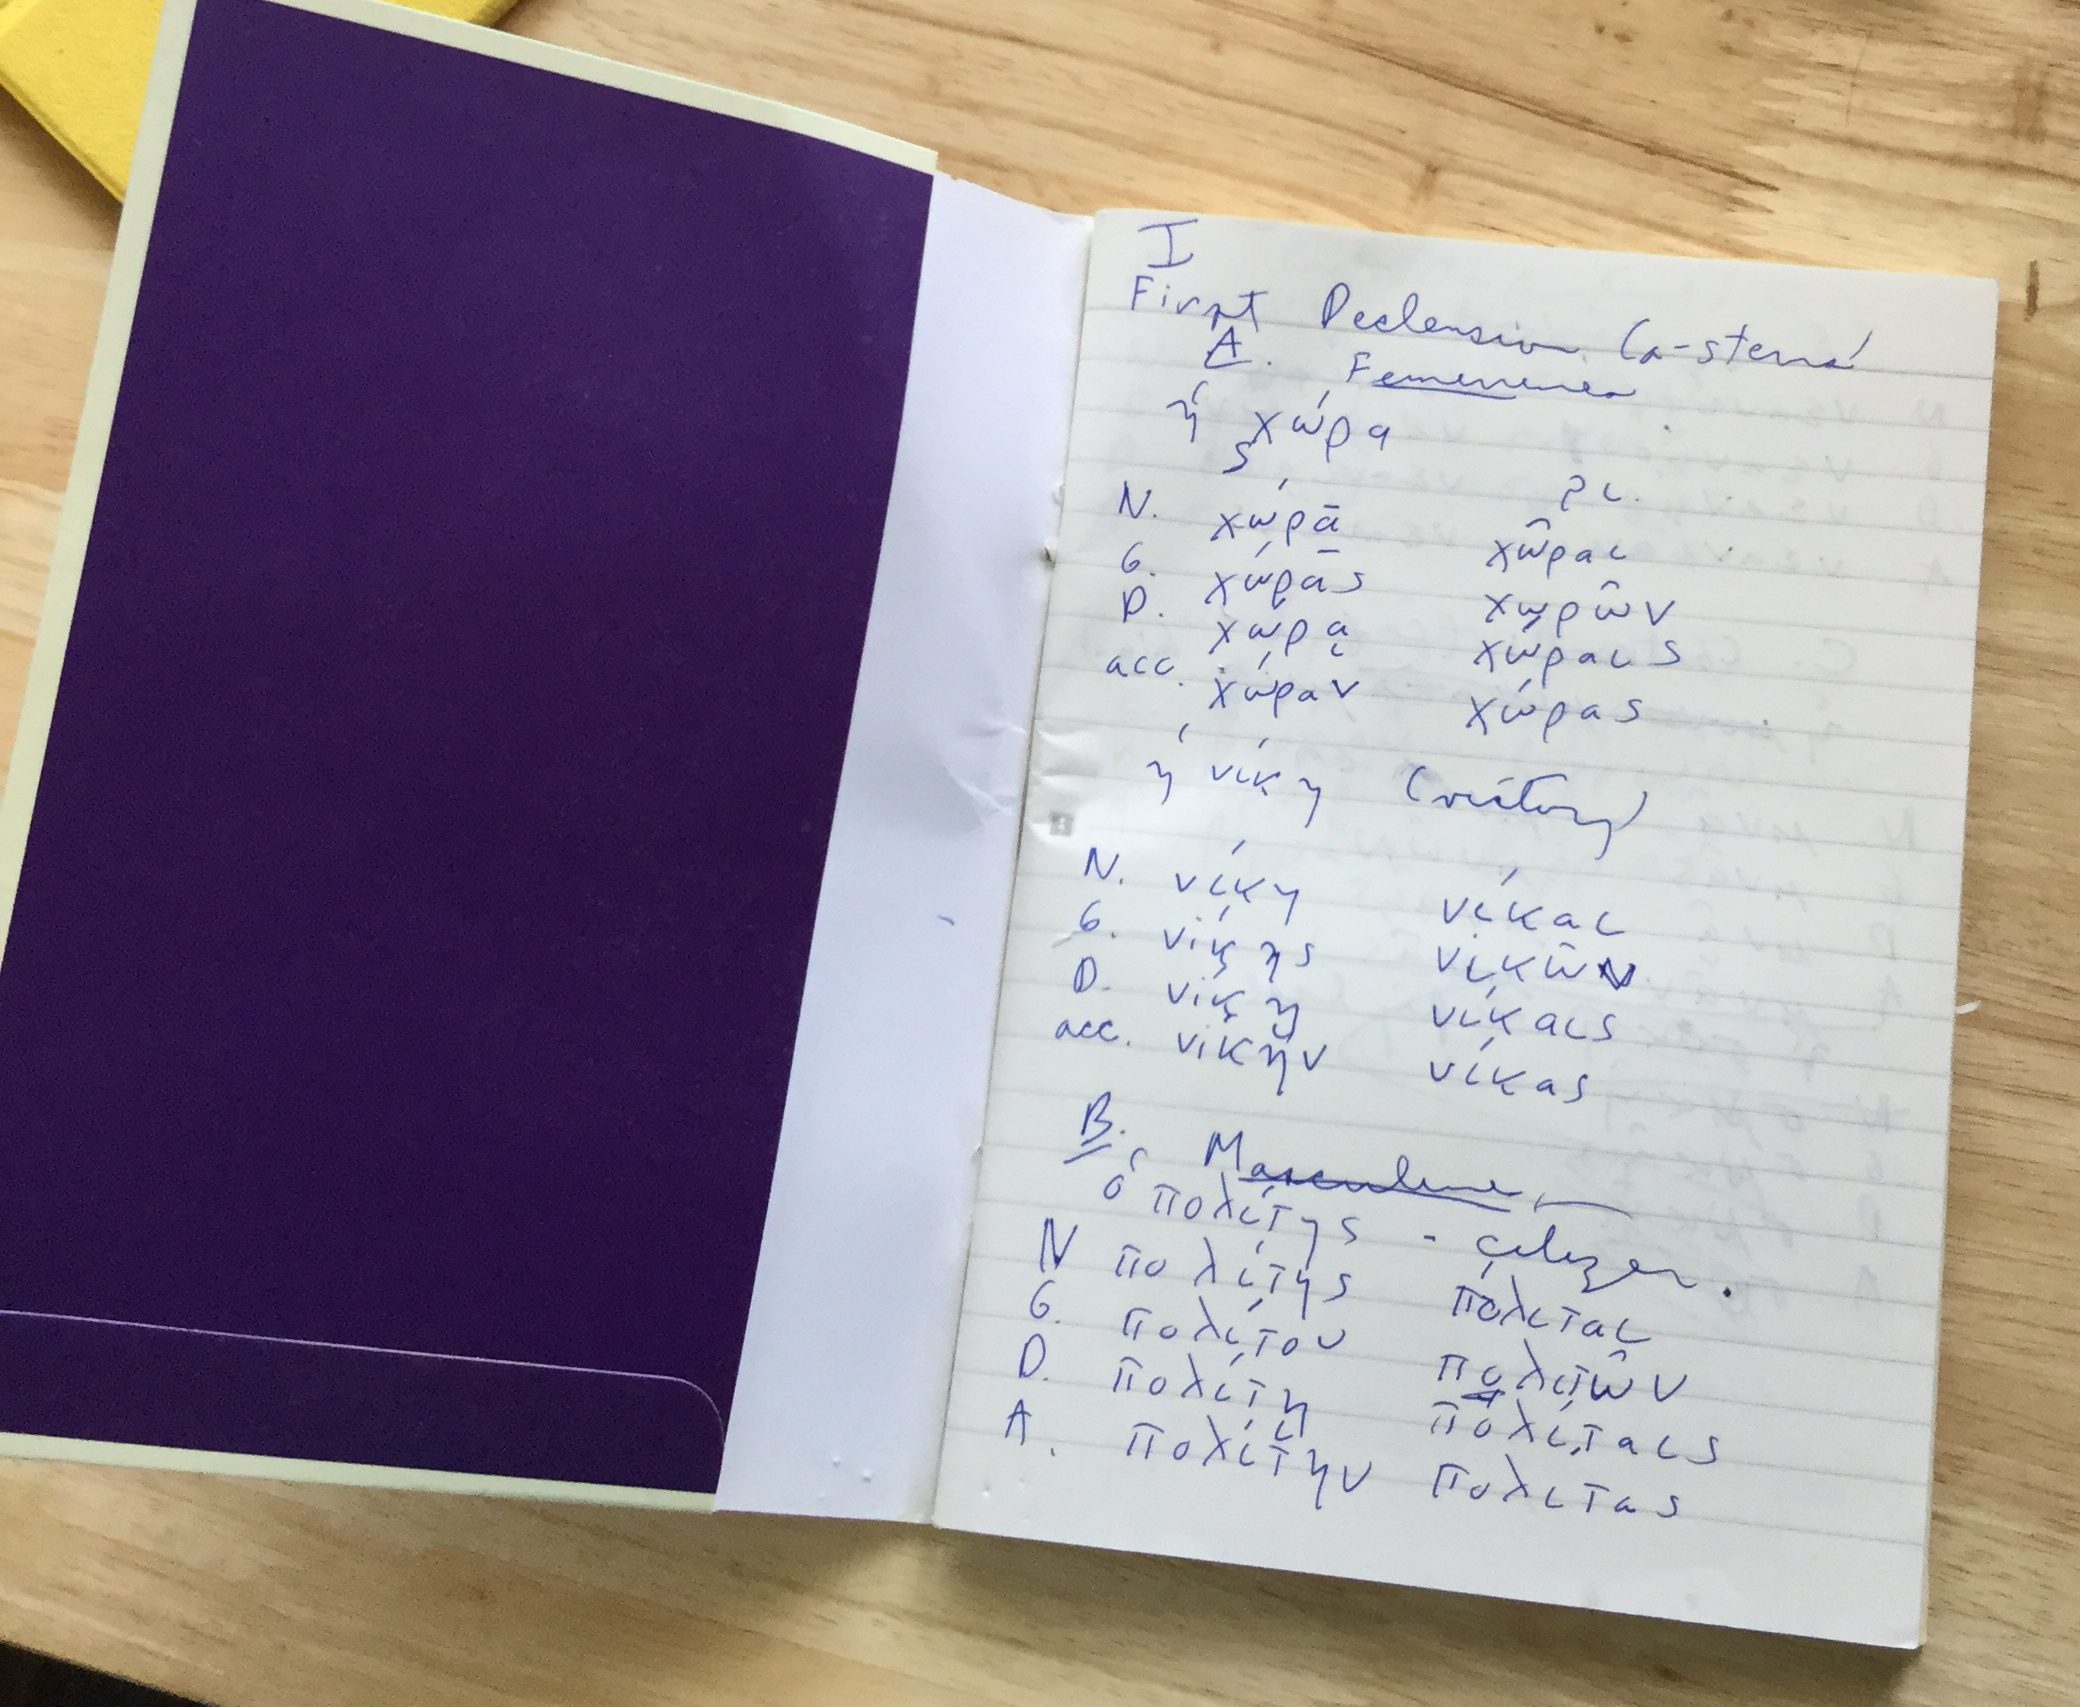 I
First Declension (a-stems)
A. Feminine
ἡ χώρα
S pl.
N. χώρᾱ χῶραι
G. χώρᾱς χωρῶν
D. χώρᾳ χώραις
acc. χώραν χώρας
ἡ νίκη (victory)
N. νίκη νίκαι
G. νίκης νικῶν
D. νίκῃ νίκαις
acc. νίκην νίκας
B. Masculine
ὁ πολίτης - citizen.
N πολίτης πολιται
G. πολίτου πολιτῶν
D. πολίτῃ πολίταις
A. πολίτην πολιτας